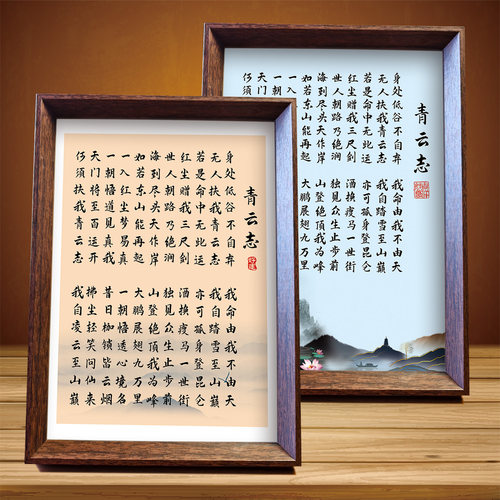 青云志
身处低谷不自弃 我命由我不由天
无人扶我青云志 我自踏雪至山巅
若是命中无此运 亦可孤身登昆仑
红尘赠我三尺剑 酒换瘦马一世街
世人朝路乃绝涧 独见众生止步前
海到尽头天作岸 山登绝顶我为峰
如若东山能再起 大鹏展翅九万里
一入红尘梦易真 一朝悟透心境名
一朝悟道见真我 昔日枷锁皆云烟
天门将至百运开 拂尘轻笑问仙来
仍须扶我青云志 我自凌云至山巅
青云志
身处低谷不自弃 我命由我不由天
无人扶我青云志 我自踏雪至山巅
若是命中无此运 亦可孤身登昆仑
红尘赠我三尺剑 酒换瘦马一世街
世人朝路乃绝涧 独见众生止步前
海到尽头天作岸 山登绝顶我为峰
如若东山能再起 大鹏展翅九万里
一入红
一朝
天门
仍须